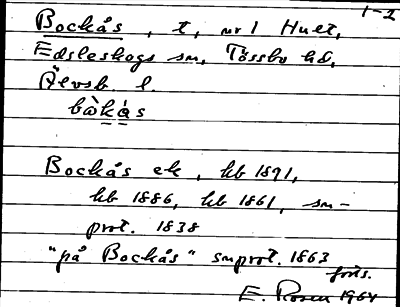 1-2
Bockås, t, nr 1 Hult,
Edsleskogs sn, Tössbo hd,
Älvsb. l.
bòkás
Bockås ek, kb 1891,
kb 1886, kb 1861, sn-
prot. 1838
"på Bockås" snprot. 1863
forts.
E. Rosen 1964